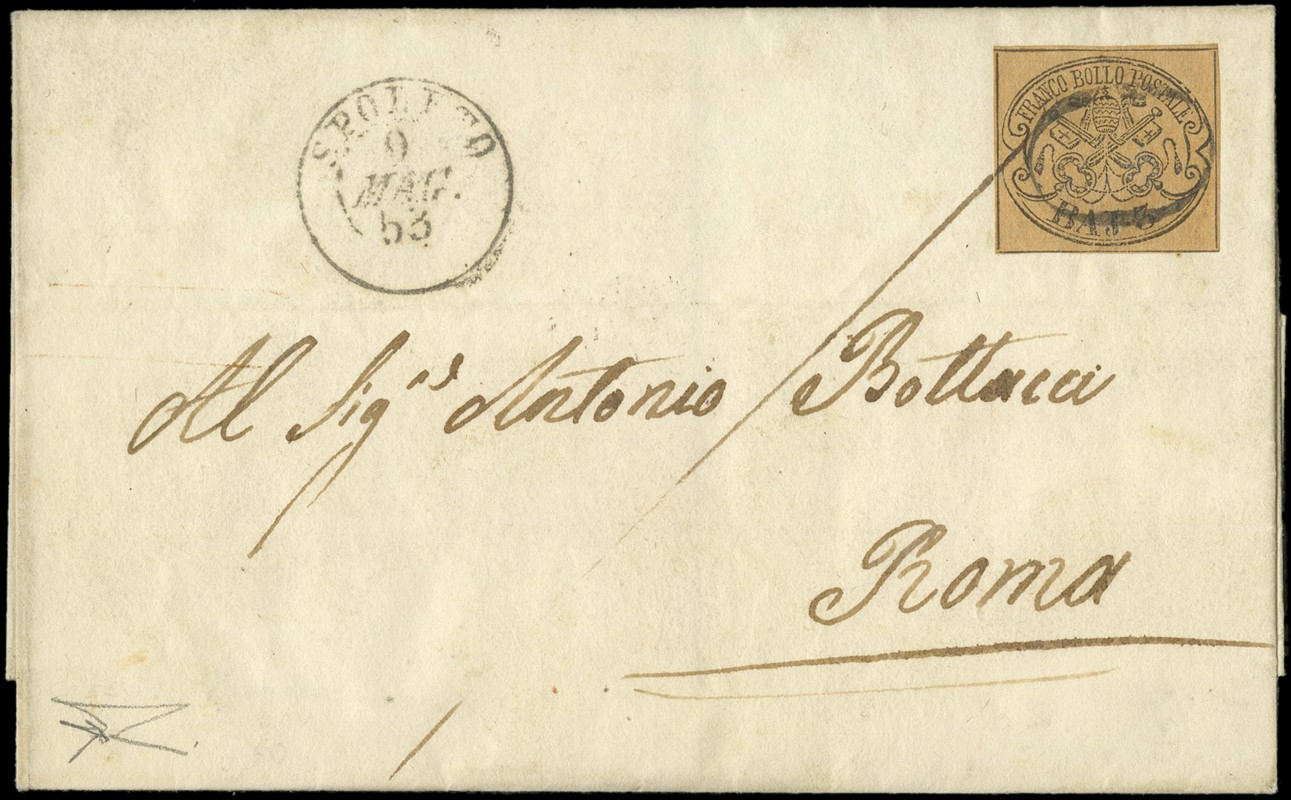 SPOLETO
9
MAG.
53
FRANCO BOLLO POSTALE
BAJ 3
Al Sig.r Antonio Bottacci
Roma